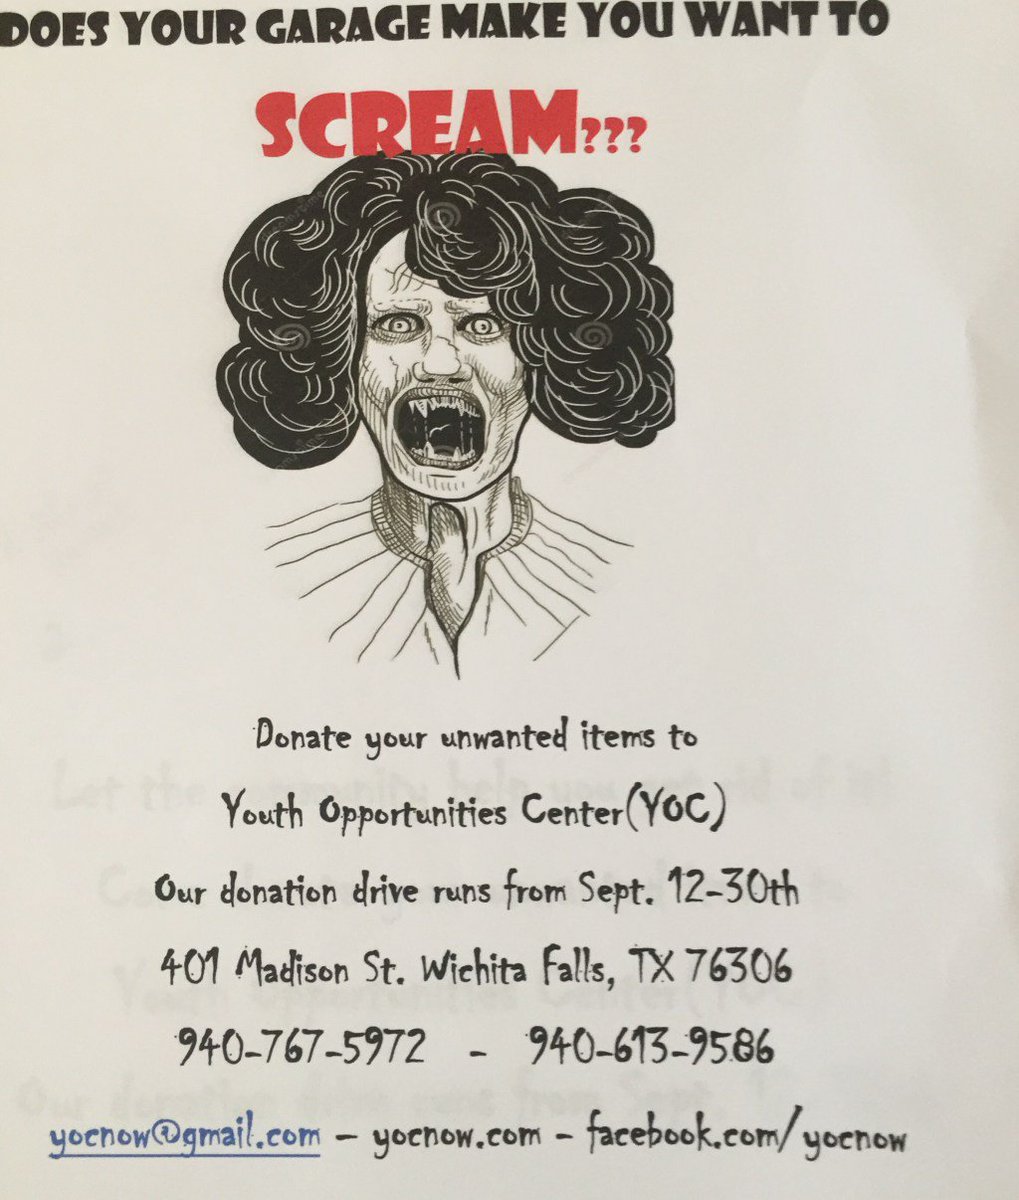 DOES YOUR GARAGE MAKE YOU WANT TO
SCREAM???
Donate your unwanted items to
Youth Opportunities Center(YOC)
Our donation drive runs from Sept. 12-30th
401 Madison St. Wichita Falls, TX 76306
940-767-5972 - 940-613-9586
yocnow@gmail.com – yocnow.com – facebook.com/yocnow